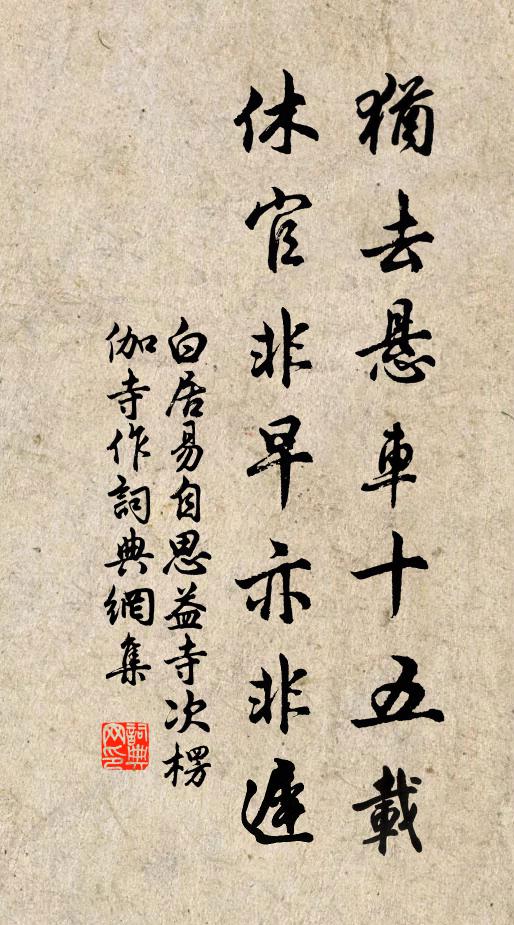 猶去懸車十五載
休官非早亦非遲
白居易自思益寺次楞
伽寺作詞典網集
詞典
网印